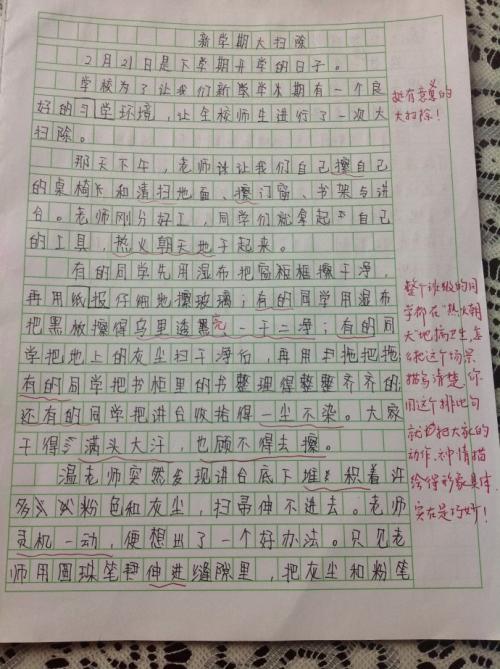 新学期大扫除
2月21日是下学期开学的日子。
学校为了让我们新学学末期有一个良
好的习学环境，让全校师生进行了一次大
扫除。
那天下午，老师让我们自己擦自己
的桌椅和清扫地面、擦门窗、书架与讲
台。老师刚分好工，同学们就拿起自己
的工具，热火朝天地干起来。
有的同学先用湿布把窗框框擦干净，
再用纸报仔细地擦玻璃；有的同学用湿布
把黑板擦得乌里透黑、一干二净；有的同
学把地上的灰尘扫干净后，再用扫拖把拖
有的同学把书柜里的书整理得整整齐齐的
还有的同学把讲台收拾得一尘不染。大家
干得满头大汗，也顾不得去擦。
温老师突然发现讲台底下堆积着许
多粉色和灰尘，扫帚伸不进去。老师
灵机一动，便想出了一个好办法。只见老
师用圆珠笔伸进缝隙里，把灰尘和粉笔
挺有意义的
大扫除！
整个班级的同
学都在"热火朝
天"地搞卫生，
把这个场景
描写清楚，你
用这个排比句
就把大家的
动作、神情描
绘得形象具体，
实在是巧妙！